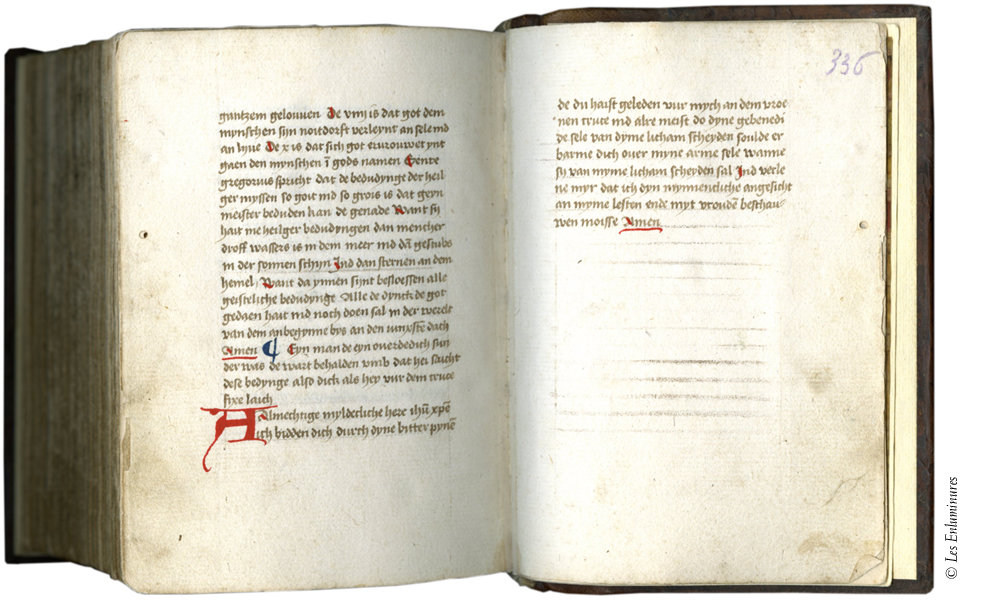 gantzem gelouven De viij is dat got dem
mynschen sijn noitdorft verleynt an sele ind
an lyue De x is dat sich got ervrouwet ynt
gaen den mynschen i gods namen Sente
gregorius spricht dat de bedudynge der heil
ger myssen so goit ind so grois is dat geyn
meister beduden kan de genade Want sy
hait me heilger bedudyngen dan mencher
droff wassers is in dem meer ind da gestubs
in der sonnen schijn Ind dan sternen an dem
hemel Want da ynnen sijnt besloessen alle
geistliche bedudynge Alle de dynck de got
gedaen hait ind noch doen sal in der werelt
van dem anbegynne bys an den iunxsten dach
Amen Eyn man de eyn overdedich sun
der was de wart behalden vmb dat hei sticht
dese bedynge also dick als hey vur dem cruce
fixe laich
Almechtige myldecliche here ihu xpe
ich bidden dich durch dyne bitter pyne
336
de du haist geleden vur mych an dem vroe
nen cruce ind alre meist do dyne gebenedi
de sele van dyme licham scheyden soulde er
barme dich over myne arme sele wanne
sy van myme licham scheyden sal Ind verle
ne myr dat ich dyn mynnentliche angesicht
an myme lesten ende myt vroude beschau
wen moisse Amen
© Les Enluminures